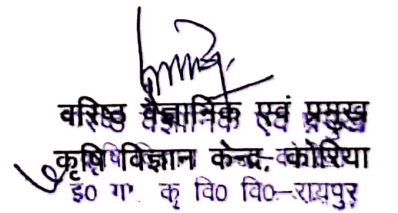 वरिष्ठ वैज्ञानिक एवं प्रमुख
कृषि विज्ञान केन्द्र, कोरिया
इ० ग० कृ वि० वि०-रायपुर